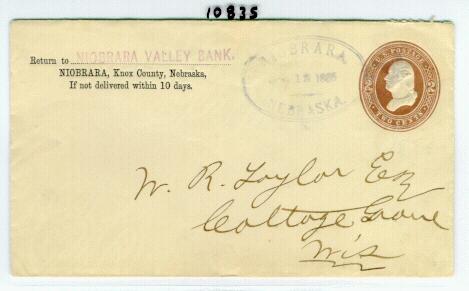 10835
Return to NIOBRARA VALLEY BANK.
NIOBRARA, Knox County, Nebraska,
If not delivered within 10 days.
NIOBRARA
13 1885
NEBRASKA.
U.S. POSTAGE
TWO CENTS
W. R. Taylor Esq
Cottage Grove
Wis